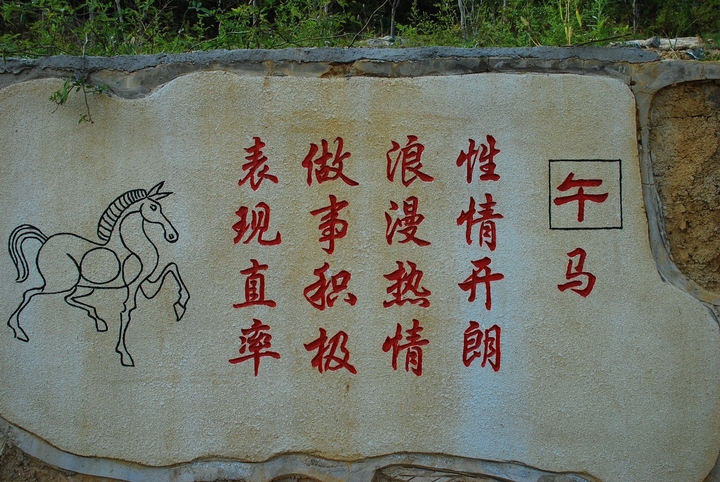 午
马
性情开朗
浪漫热情
做事积极
表现直率